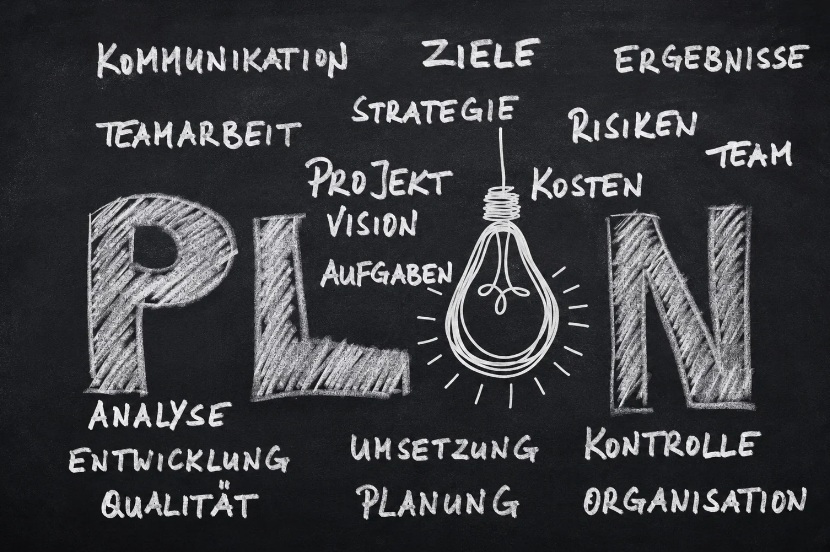 KOMMUNIKATION ZIELE ERGEBNISSE
STRATEGIE
TEAMARBEIT RISIKEN
TEAM
PROJEKT KOSTEN
VISION
AUFGABEN
PL N
ANALYSE
ENTWICKLUNG UMSETZUNG KONTROLLE
QUALITÄT PLANUNG ORGANISATION